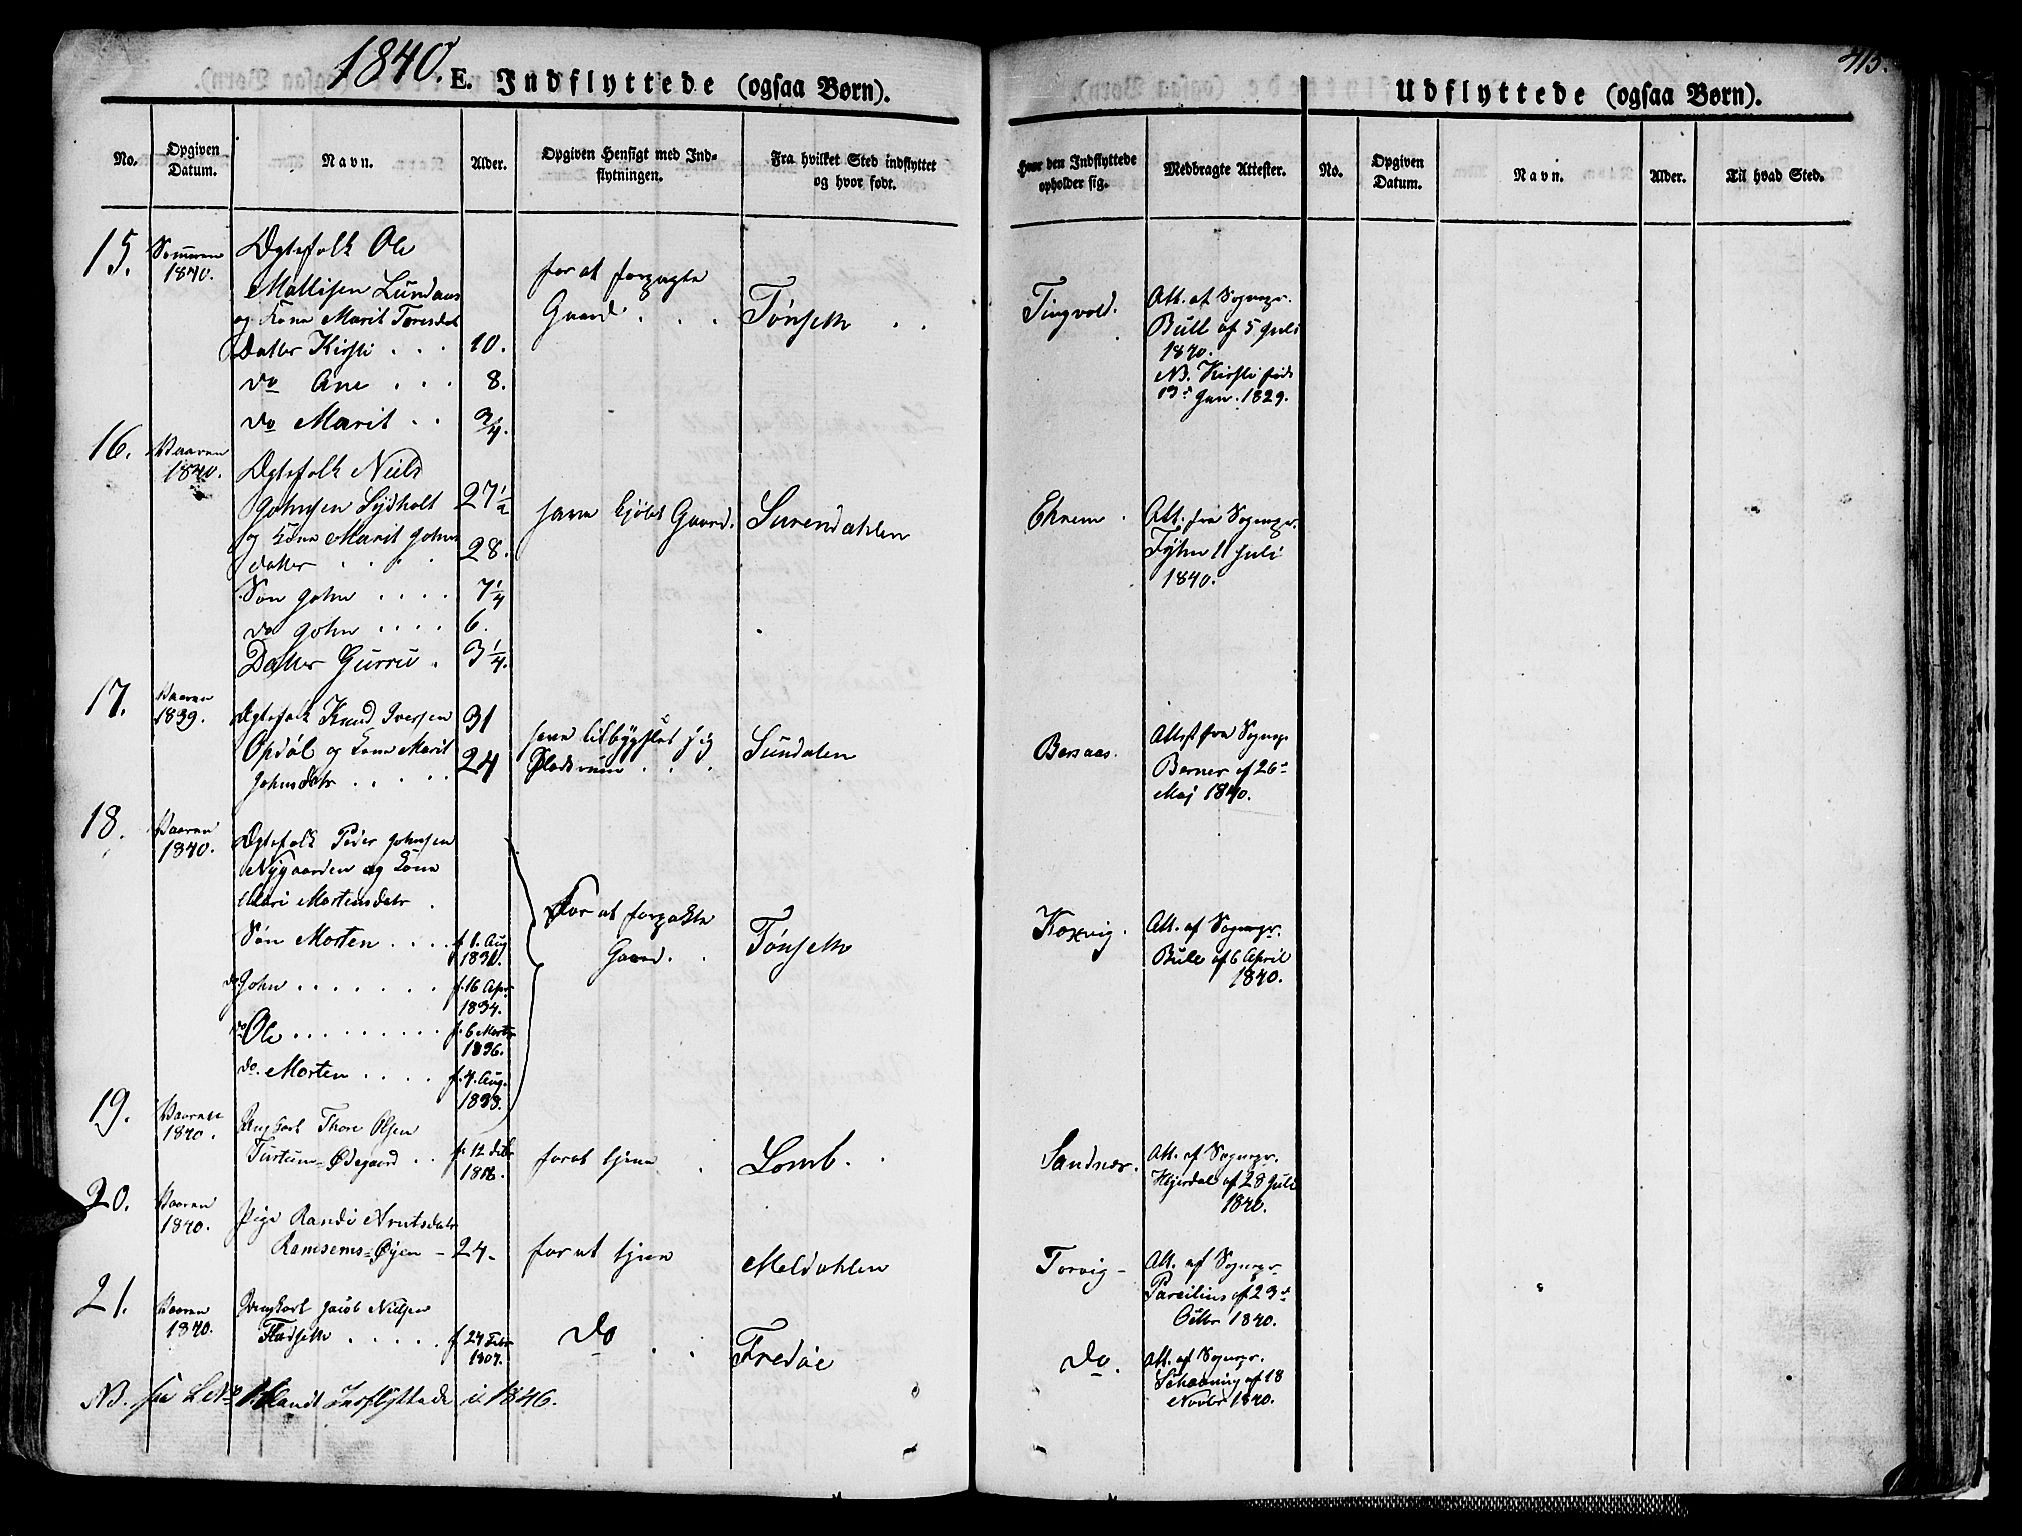 1840. E. Indflyttede (ogsaa Børn).
No.
Opgiven Datum.
Navn.
Alder.
Opgiven Hensigt med Indflytningen.
Fra hvilket Sted indflyttet og hvor født.
15. Sommeren 1840.
Ægtefolk Ole
Mallisen Lundaas
og Kone Marit Toresdat
Datter Kirsti . . . 10.
do Ane . . . 8.
do Marit . . 3/4.
for at forpagte
Gaard . . .
Tønseth . .
16. Vaaren 1840.
Ægtefolk Niels
Johnsen Sydholt 27 1/2
og Kone Marit Johns
datter . . . . 28.
Søn John . . . . 7 1/4
do John . . . . 6.
Datter Gurru . 3 1/4.
have kjøbt Gaard.
Surendahlen
17. Vaaren 1839.
Ægtefolk Knud Iversen 31
Opdøl og Kone Marit 24
Johnsdatr . . . . .
have tilbygslet sig
Pladsrum . . .
Sundalen
18. Vaaren 1840.
Ægtefolk Peder Johnsen
Nygaarden og Kone
Mari Mortensdatr .
Søn Morten . . . . f. 1. Aug 1830.
do John . . . . . . . f. 16 Apr 1834.
do Ole . . . . . . . . . f. 6 Marts 1836.
do. Morten . . . . f. 4. Aug. 1838.
For at forpakte
Gaard. .
Tønseth
19. Vaaren 1840.
Ungkarl Thore Olsen
Turtum=Ødegaard . . f. 12 Febr 1816.
for at tjene .
Lomb. .
20. Vaaren 1840.
Pige Randi Arntsdatr
Ramsems=Øyen – 24–
for at tjene
Meldahlen
21. Vaaren 1840.
Ungkarl Jacob Nielsen
Fladseth . . . . . f 24 Febr 1807.
do . .
Fredøe
NB. see Litr blandt Indflyttede i 1846.
413.
Udflyttede (ogsaa Børn).
Hvor den Indflyttede opholder sig.
Medbragte Attester.
No.
Opgiven Datum.
Navn.
Alder.
Til hvad Sted.
Tingvold.
Att. af Sognepr.
Bull af 5 Juli
1840.
NB. Kirsti født
13de Jan. 1829.
Ekrem .
Att. fra Sognepr.
Tyhn 11 Juli
1840.
Bersaas.
Attest fra Sognepr
Berner af 26de
Maj 1840.
Koxvig.
Att. af Sognepr.
Bull af 6 April
1840.
Sandnær.
Att. af Sognepr.
Hejerdal af 28 Juli
1840.
Torvig –
Att. af Sognepr
Parcilius af 23de
Octbr 1840.
do.
Att. af Sognepr.
Schanning af 18
Novbr 1840.